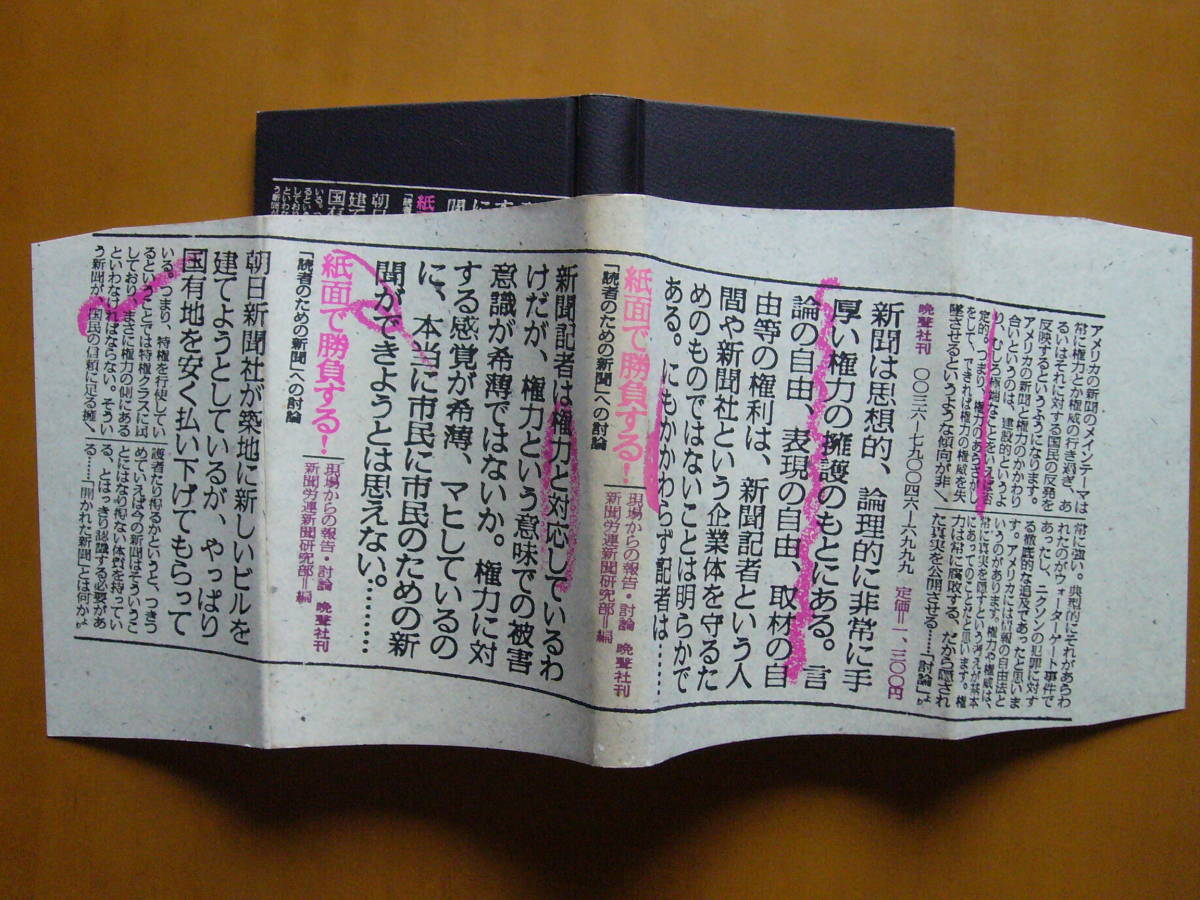 アメリカの新聞のメインテーマは
常に権力とか権威の行き過ぎ、あ
るいはそれに対する国民の反発を
反映するというふうになります。
アメリカの新聞と権力のかかわり
合いというのは、建設的というよ
り、むしろ極端なことをいえば否
定的。つまり、権力のあらさがし
をして、できれば権力の権威を失
墜させるというような傾向が非
常に強い。典型的にそれがあらわ
れたのがウォーターゲート事件で
あったし、ニクソンの犯罪に対す
る徹底的な追及であったと思いま
す。アメリカには情報の自由法と
いうのがあります。権力や権威は、
常に真実を隠すという考えが基本
にあってのことだと思います。権
力は常に腐敗する、だから隠され
た真実を公開させる……「討論」より
晩聲社刊 〇〇三六-七九〇〇四六-六九九九 定価=一、三〇〇円
新聞は思想的、論理的に非常に手
厚い権力の擁護のもとにある。言
論の自由、表現の自由、取材の自
由等の権利は、新聞記者という人
間や新聞社という企業体を守るた
めのものではないことは明らかで
ある。にもかかわらず記者は……
紙面で勝負する!
「読者のための新聞」への討論
現場からの報告・討論 晩聲社刊
新聞労連新聞研究部=編
新聞記者は権力と対応しているわ
けだが、権力という意味での被害
意識が希薄ではないか。権力に対
する感覚が希薄、マヒしているの
に、本当に市民に市民のための新
聞ができようとは思えない。……
紙面で勝負する!
「読者のための新聞」への討論
現場からの報告・討論 晩聲社刊
新聞労連新聞研究部=編
朝日新聞社が築地に新しいビルを
建てようとしているが、やっぱり
国有地を安く払い下げてもらって
いる。つまり、特権を行使してい
るということでは特権クラスに属
しており、まさに権力の側にある
といわなければならない。そうい
う新聞が、国民の信頼に足る擁
護者たり得るかというと、つきつ
めていえば今の新聞はそういうこ
とにはなり得ない体質を持ってい
る、とはっきり認識する必要があ
る……「開かれた新聞」とは何かより